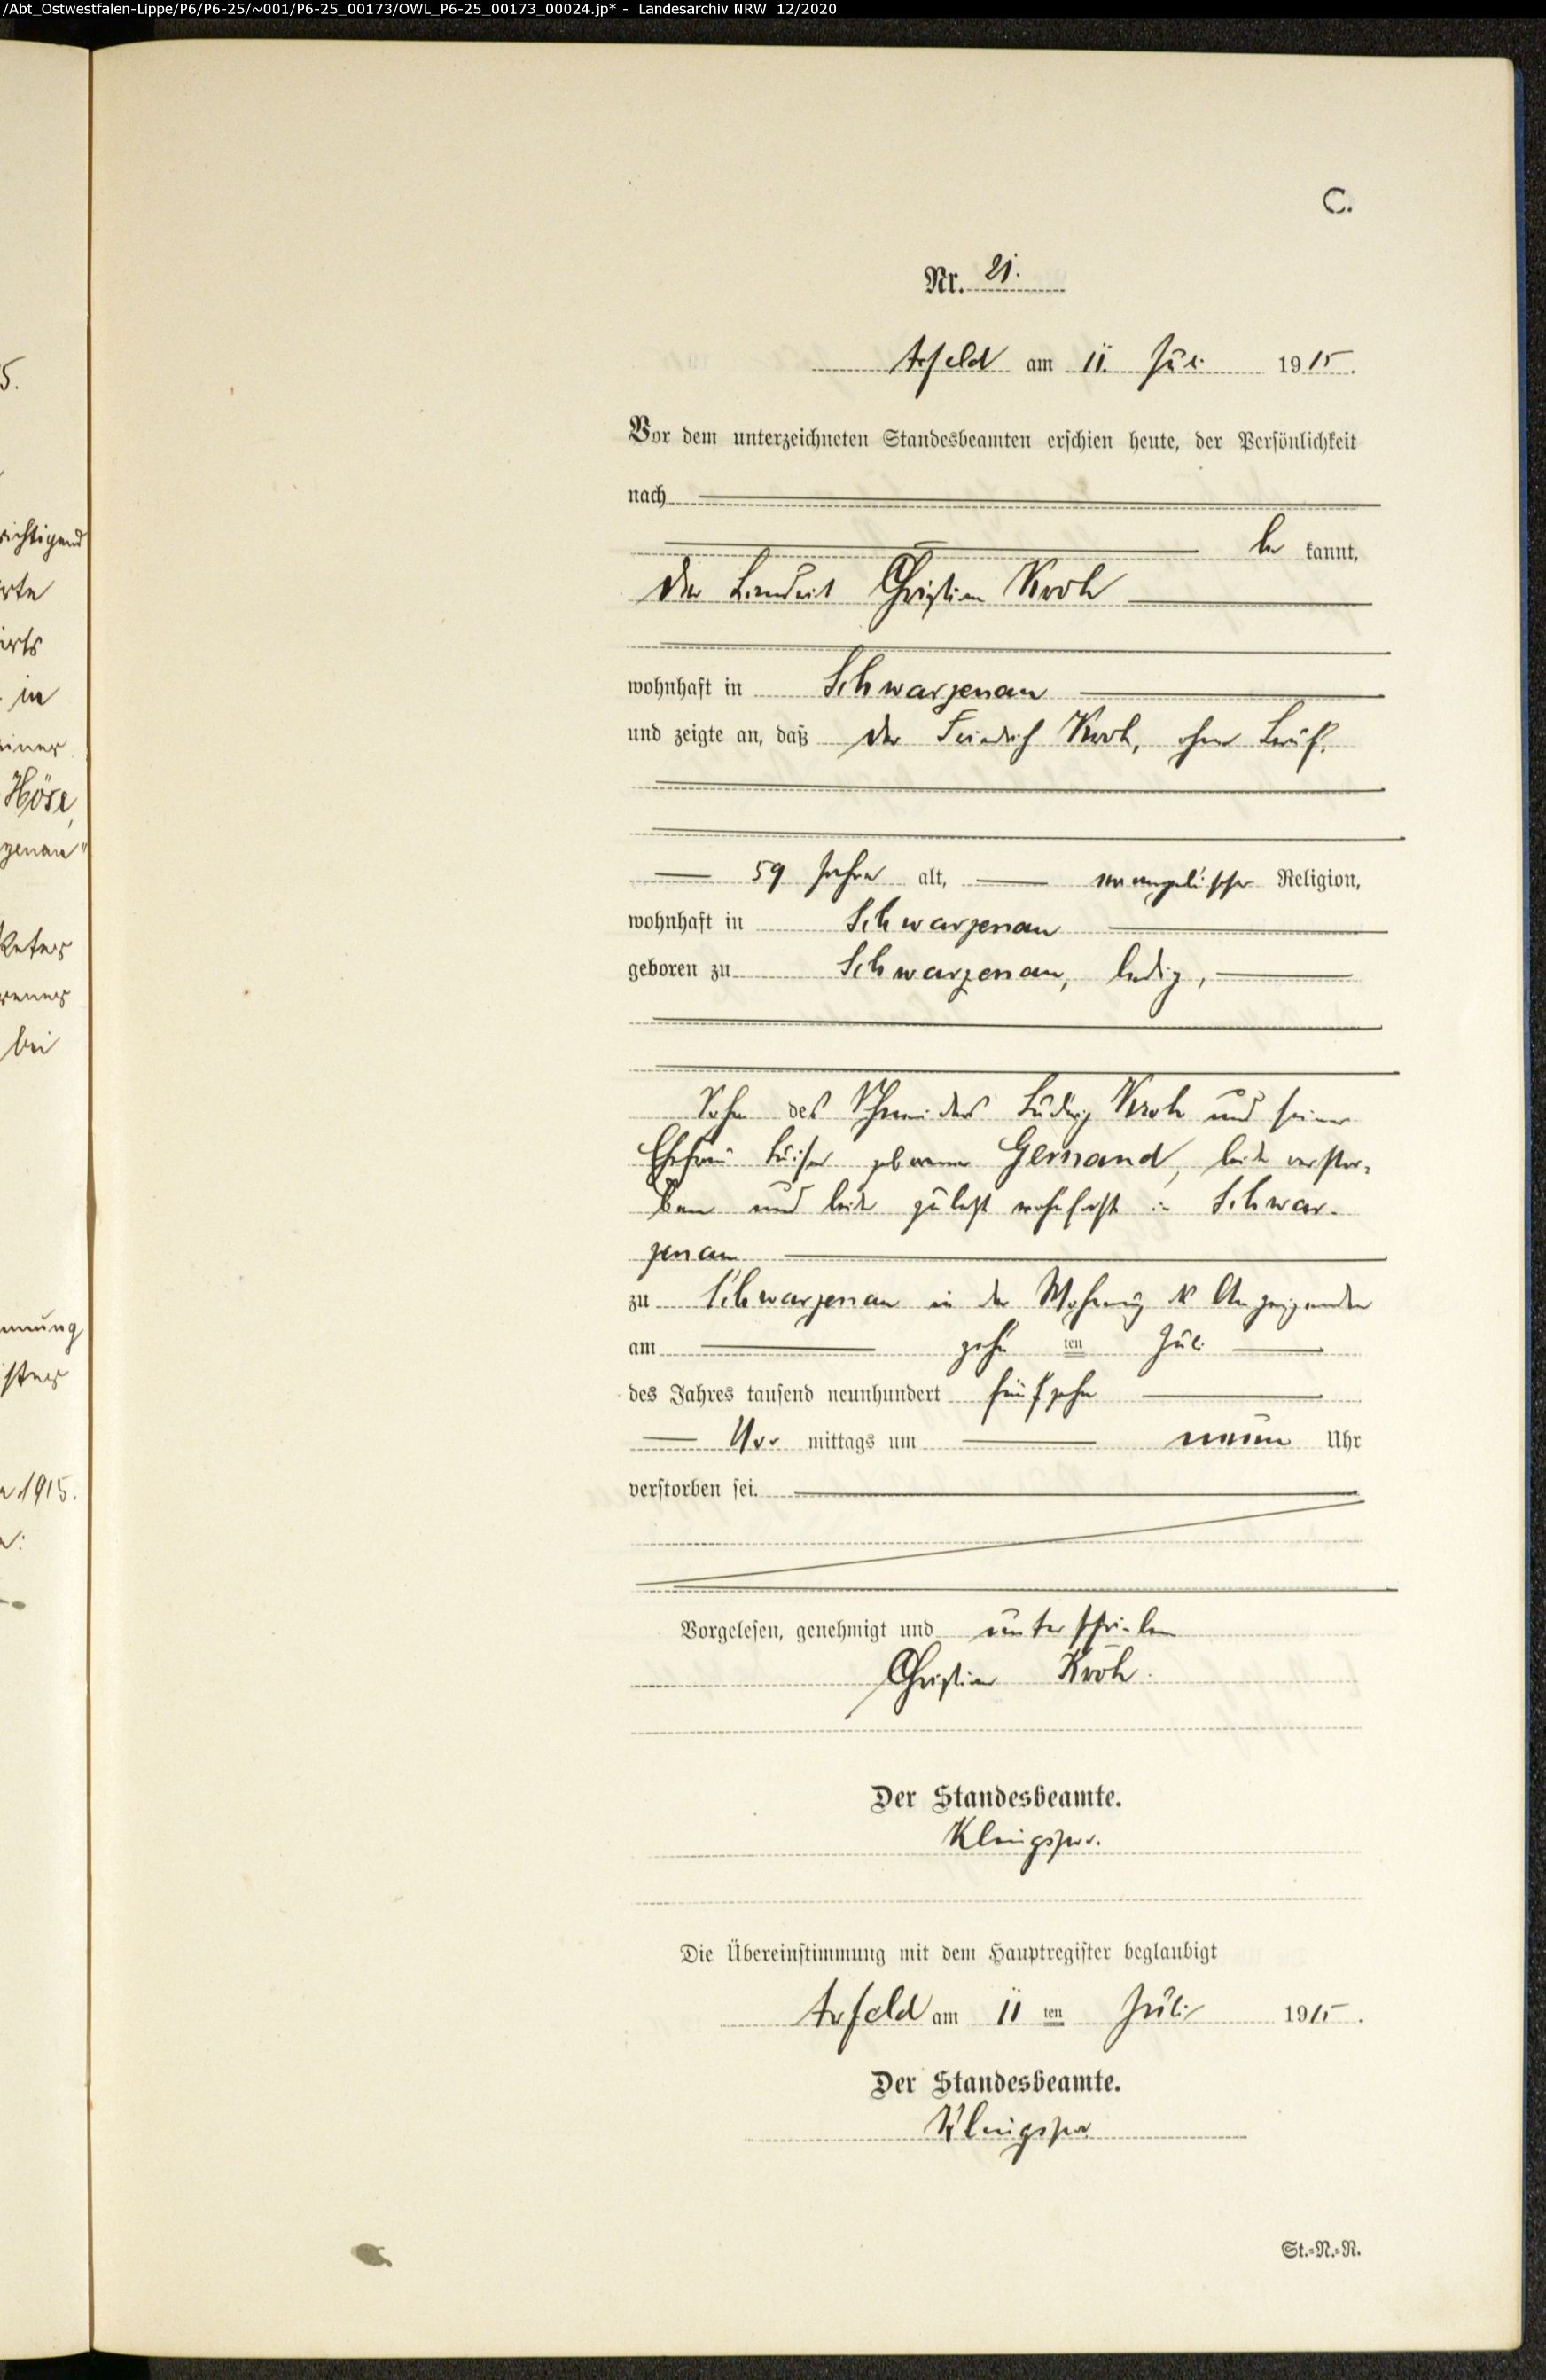 /Abt_Ostwestfalen-Lippe/P6/P6-25/~001/P6-25_00173/OWL_P6-25_00173_00024.jp* - Landesarchiv NRW 12/2020
C.
Nr. 21.
Arfeld am 11. Juli 1915.
Vor dem unterzeichneten Standesbeamten erschien heute, der Persönlichkeit
nach
be kannt,
der Landwirt Christian Kroh
wohnhaft in Schwarzenau
und zeigte an, daß der Friedrich Kroh, ohne Beruf,
59 Jahre alt, evangelischer Religion,
wohnhaft in Schwarzenau
geboren zu Schwarzenau, ledig,
Sohn des Schneiders Ludwig Kroh und seiner
Ehefrau Luise geborener Gernand, beide verstor-
ben und beide zuletzt wohnhaft in Schwar-
zenau
zu Schwarzenau in der Wohnung des Anzeigenden
am zehn ten Juli
des Jahres tausend neunhundert fünfzehn
Vor mittags um neun Uhr
verstorben sei.
Vorgelesen, genehmigt und unterschrieben
Christian Kroh.
Der Standesbeamte.
Klingspor.
Die Übereinstimmung mit dem Hauptregister beglaubigt
Arfeld am 11 ten Juli 1915.
Der Standesbeamte.
Klingspor
St.=N.=R.
5.
rte
in
einer
Höse,
zenau"
bei
1915.